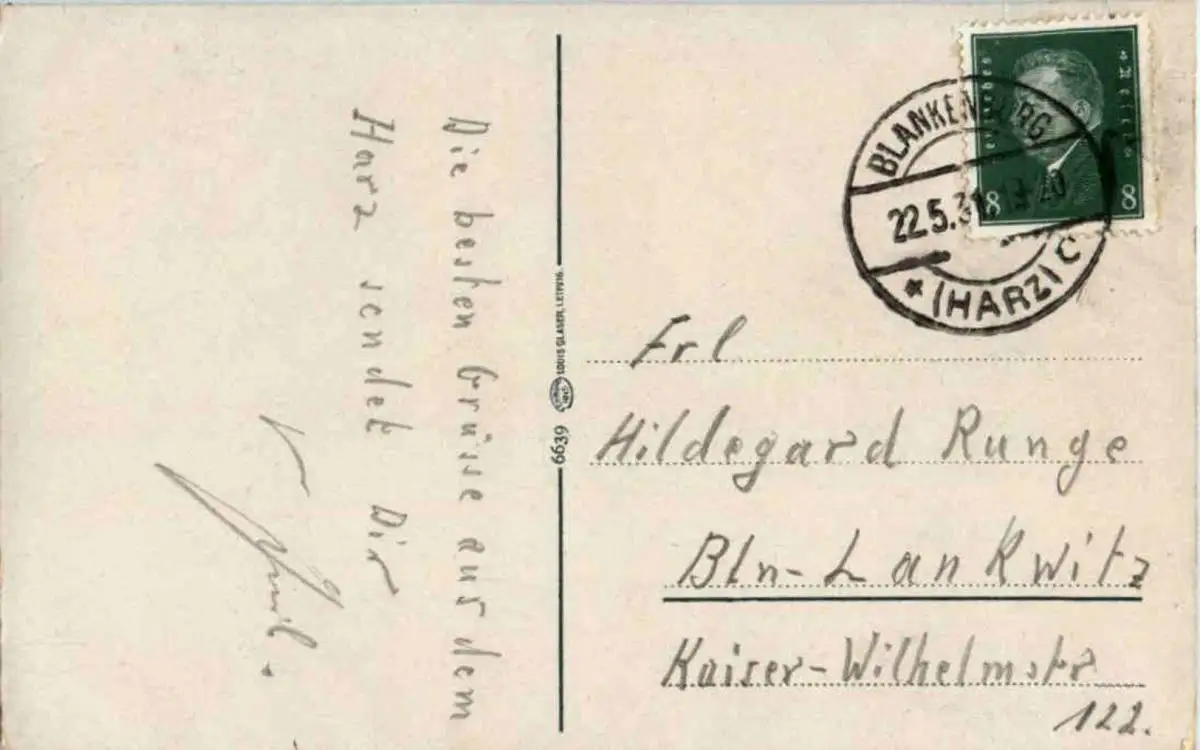 Die besten Grüsse aus dem
Harz sendet Dir
6639
LOUIS GLASER, LEIPZIG.
Deutsches Reich
8 8
BLANKENBURG
22.5.31.
* (HARZ) C
Frl
Hildegard Runge
Bln-Lankwitz
Kaiser-Wilhelmstr
122.